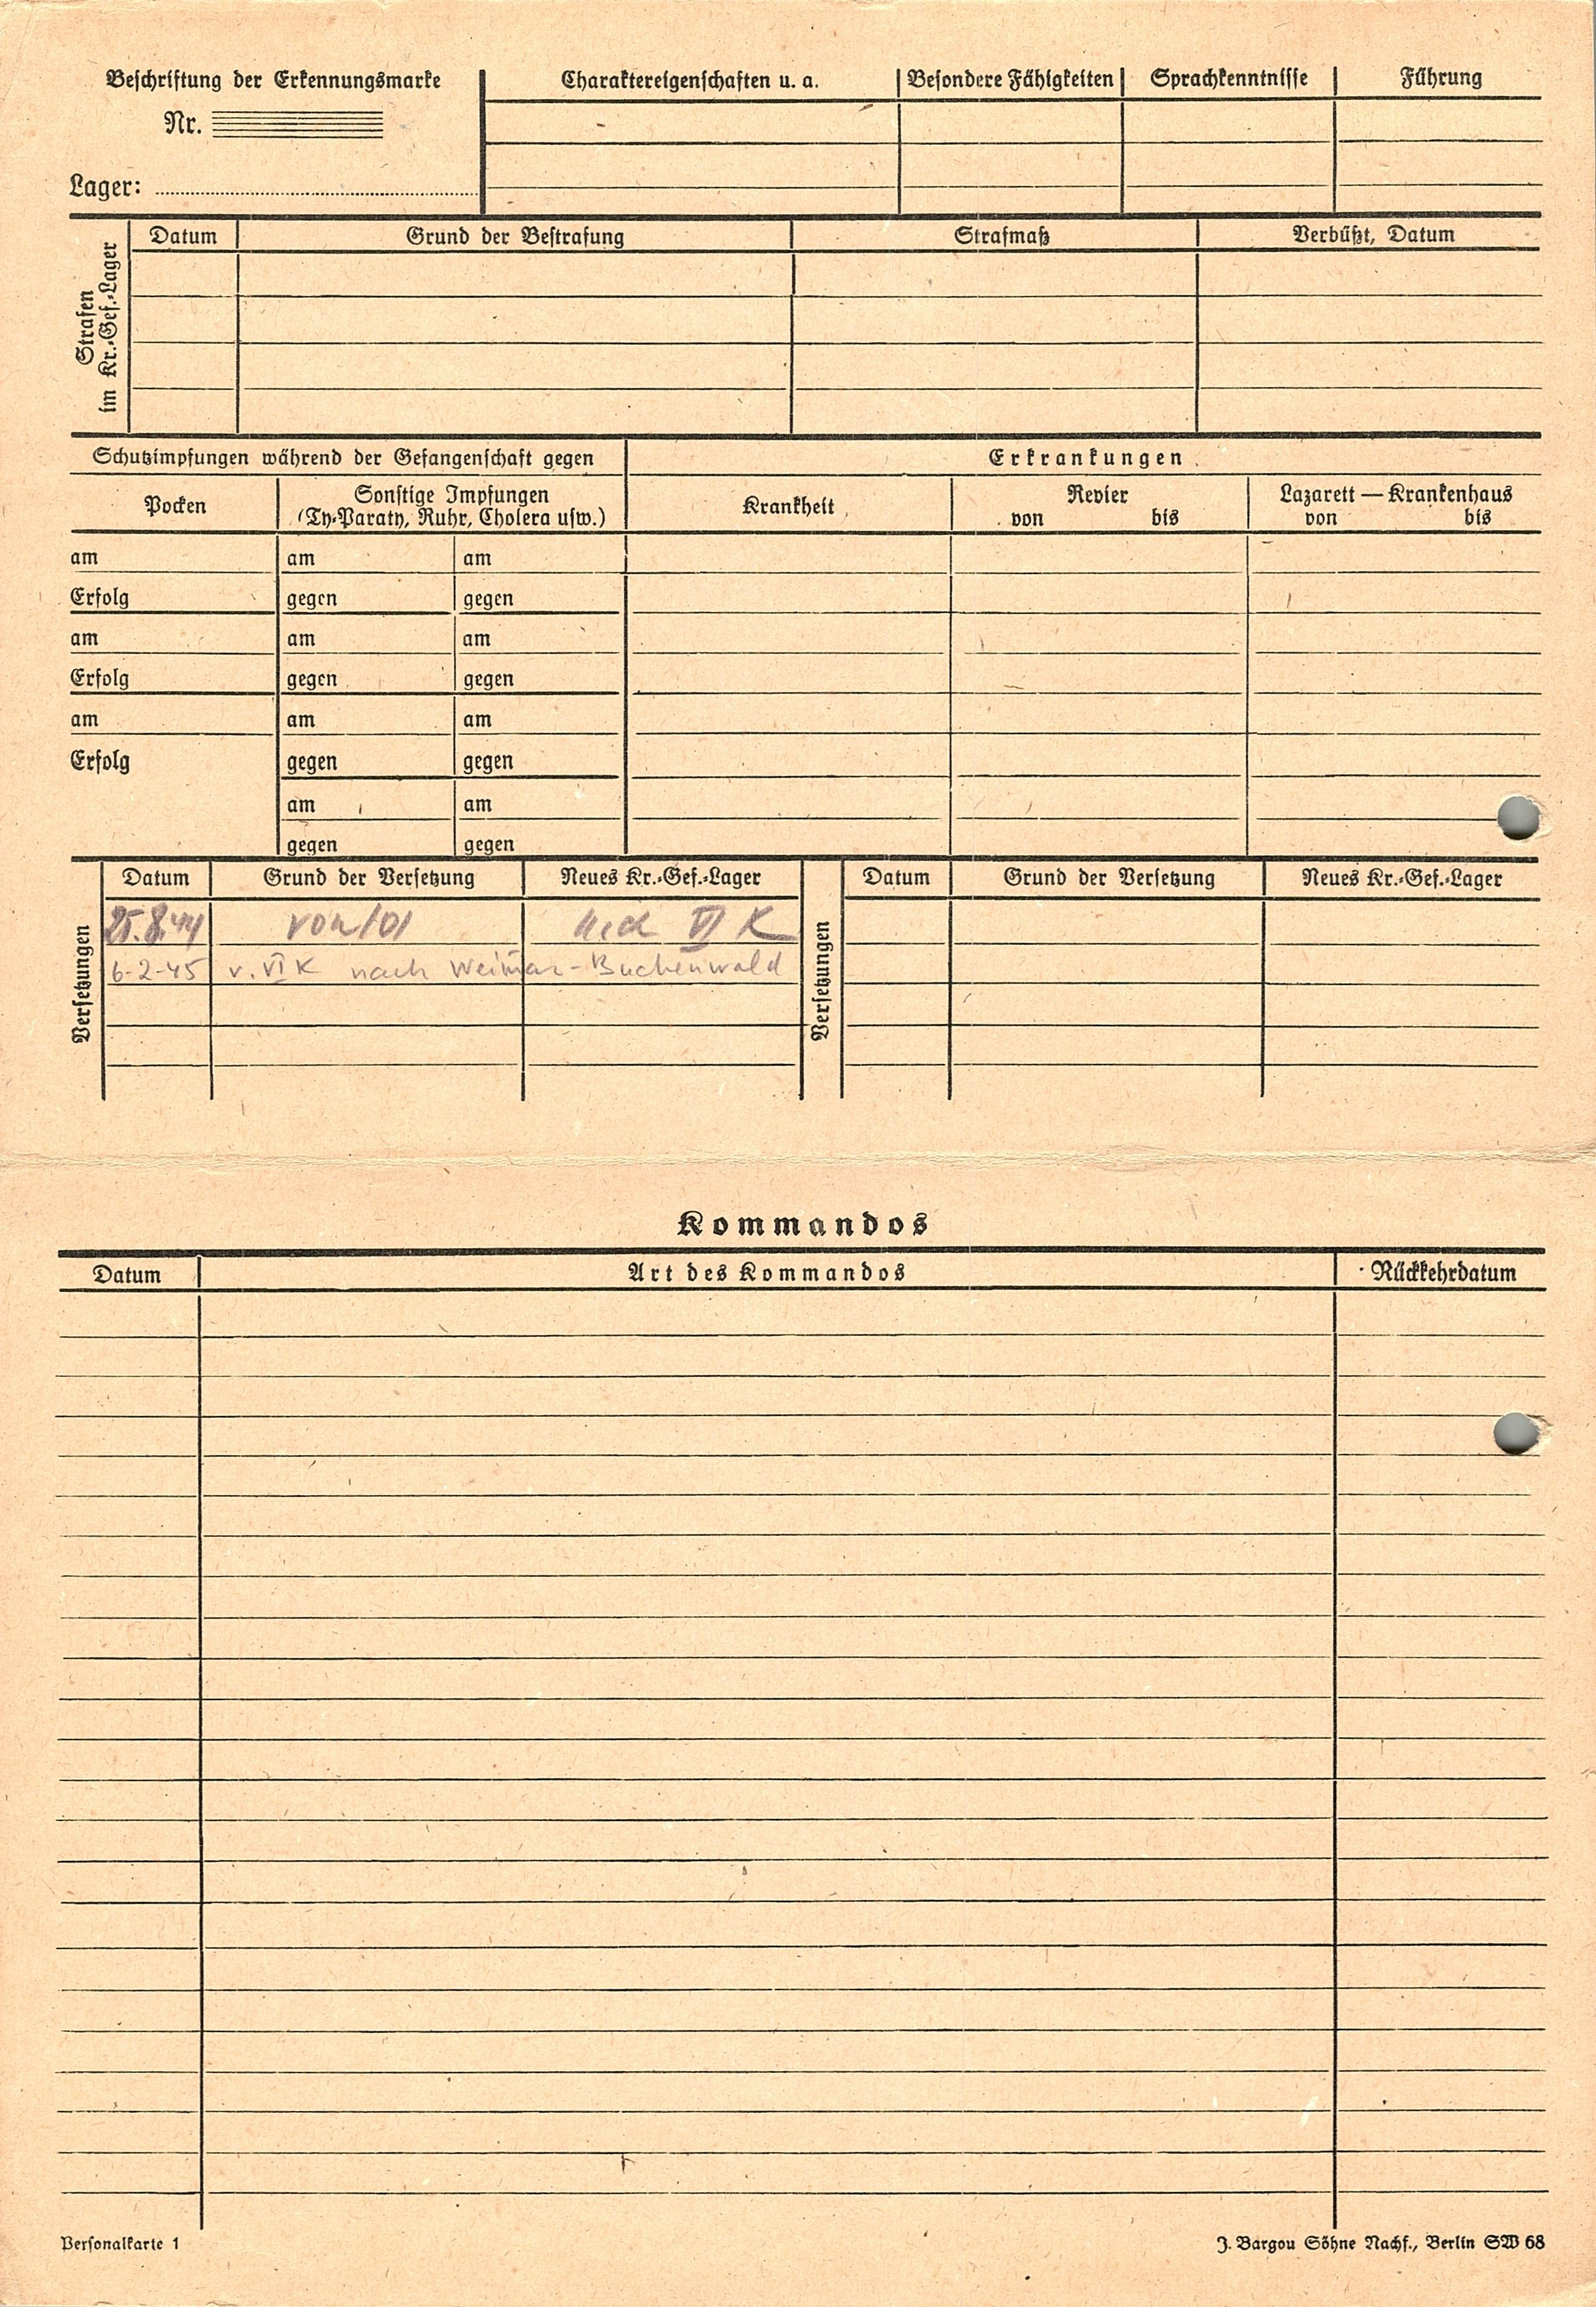 Beschriftung der Erkennungsmarke
Nr.
Lager:
Charaktereigenschaften u. a. Besondere Fähigkeiten Sprachkenntnisse Führung
Strafen
im Kr.-Gef.-Lager
Datum Grund der Bestrafung Strafmaß Verbüßt, Datum
Schutzimpfungen während der Gefangenschaft gegen Erkrankungen
Pocken
Sonstige Impfungen
(Ty-Paraty, Ruhr, Cholera usw.)
Krankheit
Revier
von bis
Lazarett — Krankenhaus
von bis
am am am
Erfolg gegen gegen
am am am
Erfolg gegen gegen
am am am
Erfolg gegen gegen
am am
gegen gegen
Versetzungen
Datum Grund der Versetzung Neues Kr.-Gef.-Lager
25.8.44 VI K
6-2-45 v. VI K nach Weimar-Buchenwald
Versetzungen
Datum Grund der Versetzung Neues Kr.-Gef.-Lager
Kommandos
Datum Art des Kommandos Rückkehrdatum
Personalkarte 1
J. Bargou Söhne Nachf., Berlin SW 68